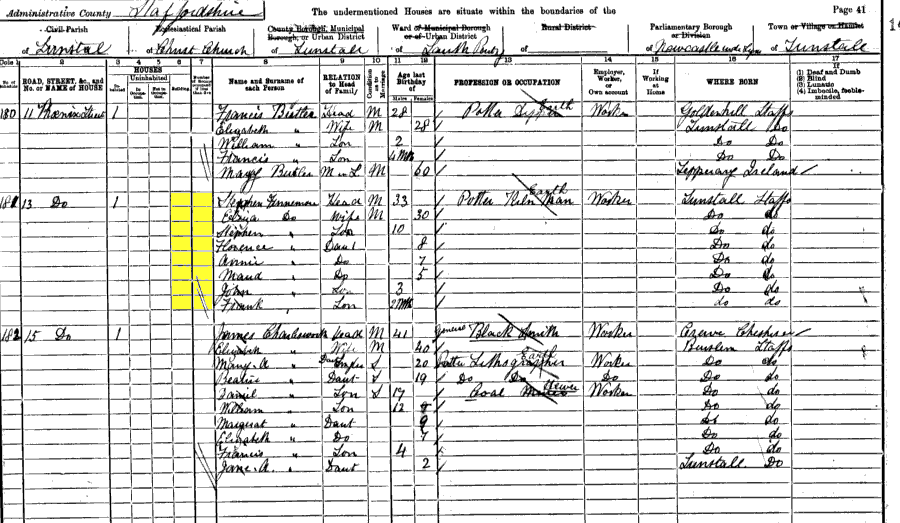 Administrative County Staffordshire The undermentioned Houses are situate within the boundaries of the Page 41
Civil Parish Ecclesiastical Parish County Borough, Municipal Borough, or Urban District Ward of Municipal Borough or of Urban District Rural District Parliamentary Borough or Division Town or Village or Hamlet
of Tunstall of Christ Church of Tunstall of of of Newcastle of Tunstall
Cols 1 2 3 4 5 6 7 8 9 10 11 12 13 14 15 16 17
No. of Schedule ROAD, STREET, &c., and No. or NAME of HOUSE HOUSES Inhabited Uninhabited In Occupation Not in Occupation Building Number of Rooms occupied if less than five Name and Surname of each Person RELATION to Head of Family Condition as to Marriage Age last Birthday of Males Females PROFESSION OR OCCUPATION Employer, Worker, or Own account If Working at Home WHERE BORN If (1) Deaf and Dumb (2) Blind (3) Lunatic (4) Imbecile, feeble-minded
180 11 Phoenix Street 1 Francis Head M 28 Potter Earth Worker Goldenhill Staffs
Elizabeth " Wife M 28 Tunstall Do
William " Son 2 Do Do
Francis " Son 4 Mths Do Do
Mary Butler M in L M 60 Tipperary Ireland
181 13 Do 1 Stephen Finnemore Head M 33 Potter Kiln Man Earth Worker Tunstall Staffs
Eliza Do Wife M 30 Do do
Stephen " Son 10 Do do
Florence " Daut 8 Do do
Annie " Do 7 Do do
Maud " Do 5 Do do
John " Son 3 Do do
Frank " Son 2 Mths do do
182 15 Do 1 James Charlesworth Head M 41 General Black Smith Worker Crewe Cheshire
Elizabeth " Wife M 40 Burslem Staffs
Mary A " Daut S 20 Potter Lithographer Earth Worker Do do
Beatrice " Daut S 19 Do Do Do Do do
Daniel " Son S 17 Coal Hewer Worker Do do
William " Son 12 Do do
Margaret " Daut 9 Do do
Elizabeth " Do 7 Do do
Francis " Son 4 Do do
Jane A. " Daut 2 Tunstall Do